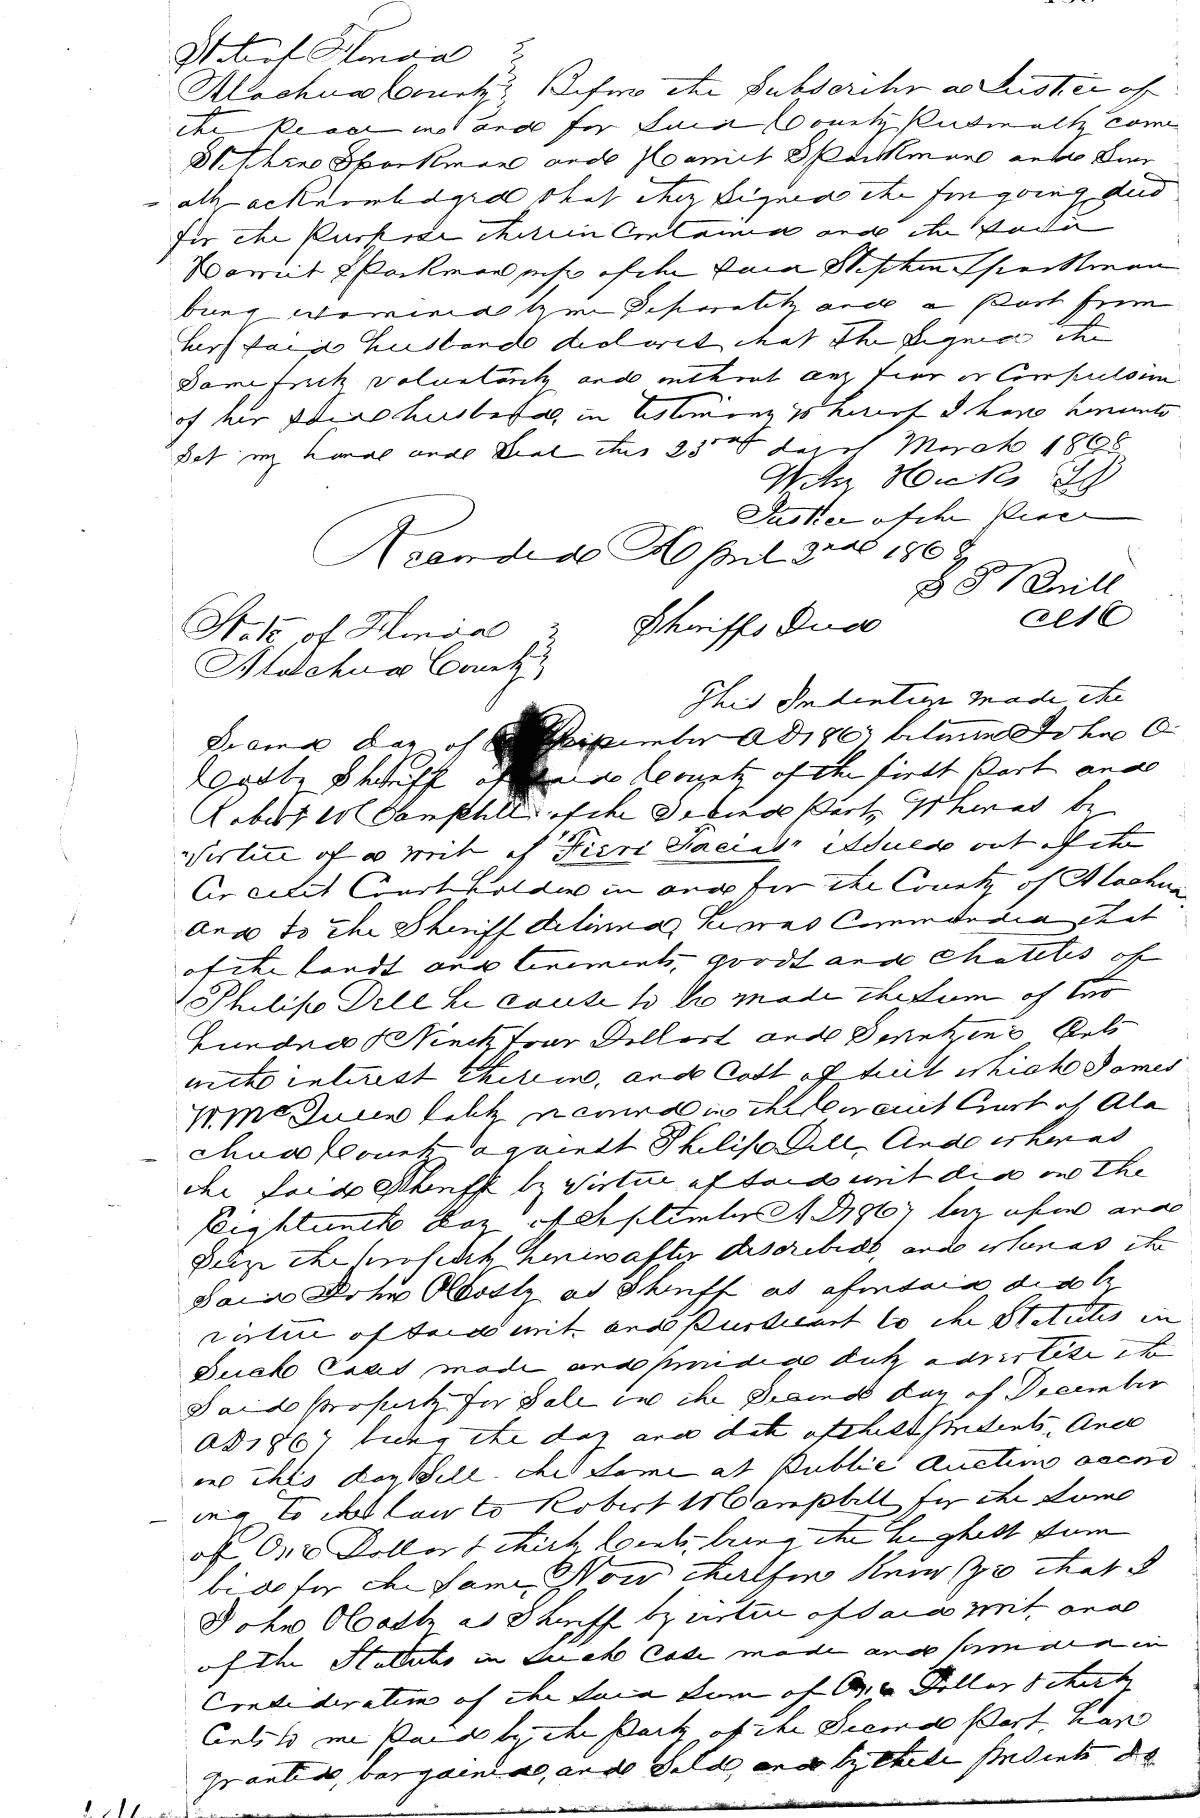 State of Florida
Alachua County Before the Subscriber a Justice of
the Peace in and for Said County Personally came
Stephen Sparkman and Harriet Sparkman and Sever
ally acknowledged that they Signed the foregoing deed
for the Purpose therein Contained and the said
Harriet Sparkman wife of the said Stephen Sparkman
being examined by me Seperately and a Part from
her said husband declares that She Signed the
Same freely voluntarily and without any fear or Compulsion
of her said husband, in testimony Whereof I have hereunto
Set my hand and Seal this 23rd day of March 1868
Wiley Hicks
Justice of the Peace
Recorded April 2nd 1868
Clk
State of Florida Sheriffs Deed
Alachua County
This Indenture made the
Second day of December AD 1867 between John O
Cosby Sheriff of said County of the first Part and
Robert W Campbell of the Second Part, Whereas by
virtue of a writ of "Fieri Facias" issued out of the
Circuit Court holden in and for the County of Alachua
and to the Sheriff delivered, he was Commanded that
of the lands and tenements, goods and chattels of
Philip Dell he cause to be made the Sum of two
hundred & Ninety four Dollars and Seventy one Cents
with interest thereon, and Cost of suit which James
W. McQueen lately recovered in the Circuit Court of Ala
chua County against Philip Dell, And whereas
the said Sheriff by virtue of said writ did on the
Eighteenth day of September A D 1867 levy upon and
Seize the property hereinafter discribed, and whereas the
Said John O Cosby as Sheriff as aforesaid did by
virtue of said writ and Pursuant to the Statutes in
Such Cases made and provided duly advertise the
Said property for Sale on the Second day of December
AD 1867 being the day and date of these presents, And
on this day Sell the same at Public Auction accord
ing to the law to Robert W Campbell for the Sum
of One Dollar & thirty Cents, being the highest sum
bid for the same, Now therefore Know ye that I
John O Cosby as Sheriff by virtue of said writ, and
of the Statutes in Such Case made and provided in
Consideration of the said Sum of One Dollar & thirty
Cents to me Paid by the Party of the Second Part, have
granted, bargained, and Sold, and by these presents do